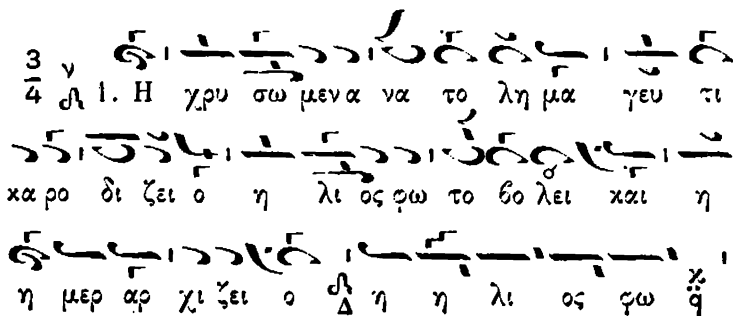 3/4 ν 1. Η χρυ σω μεν α να το λη μα γευ τι
κα ρο δι ζει ο η λι ος φω το βο λει και η
η μερ αρ χι ζει ο Δ η η λι ος φω χ q